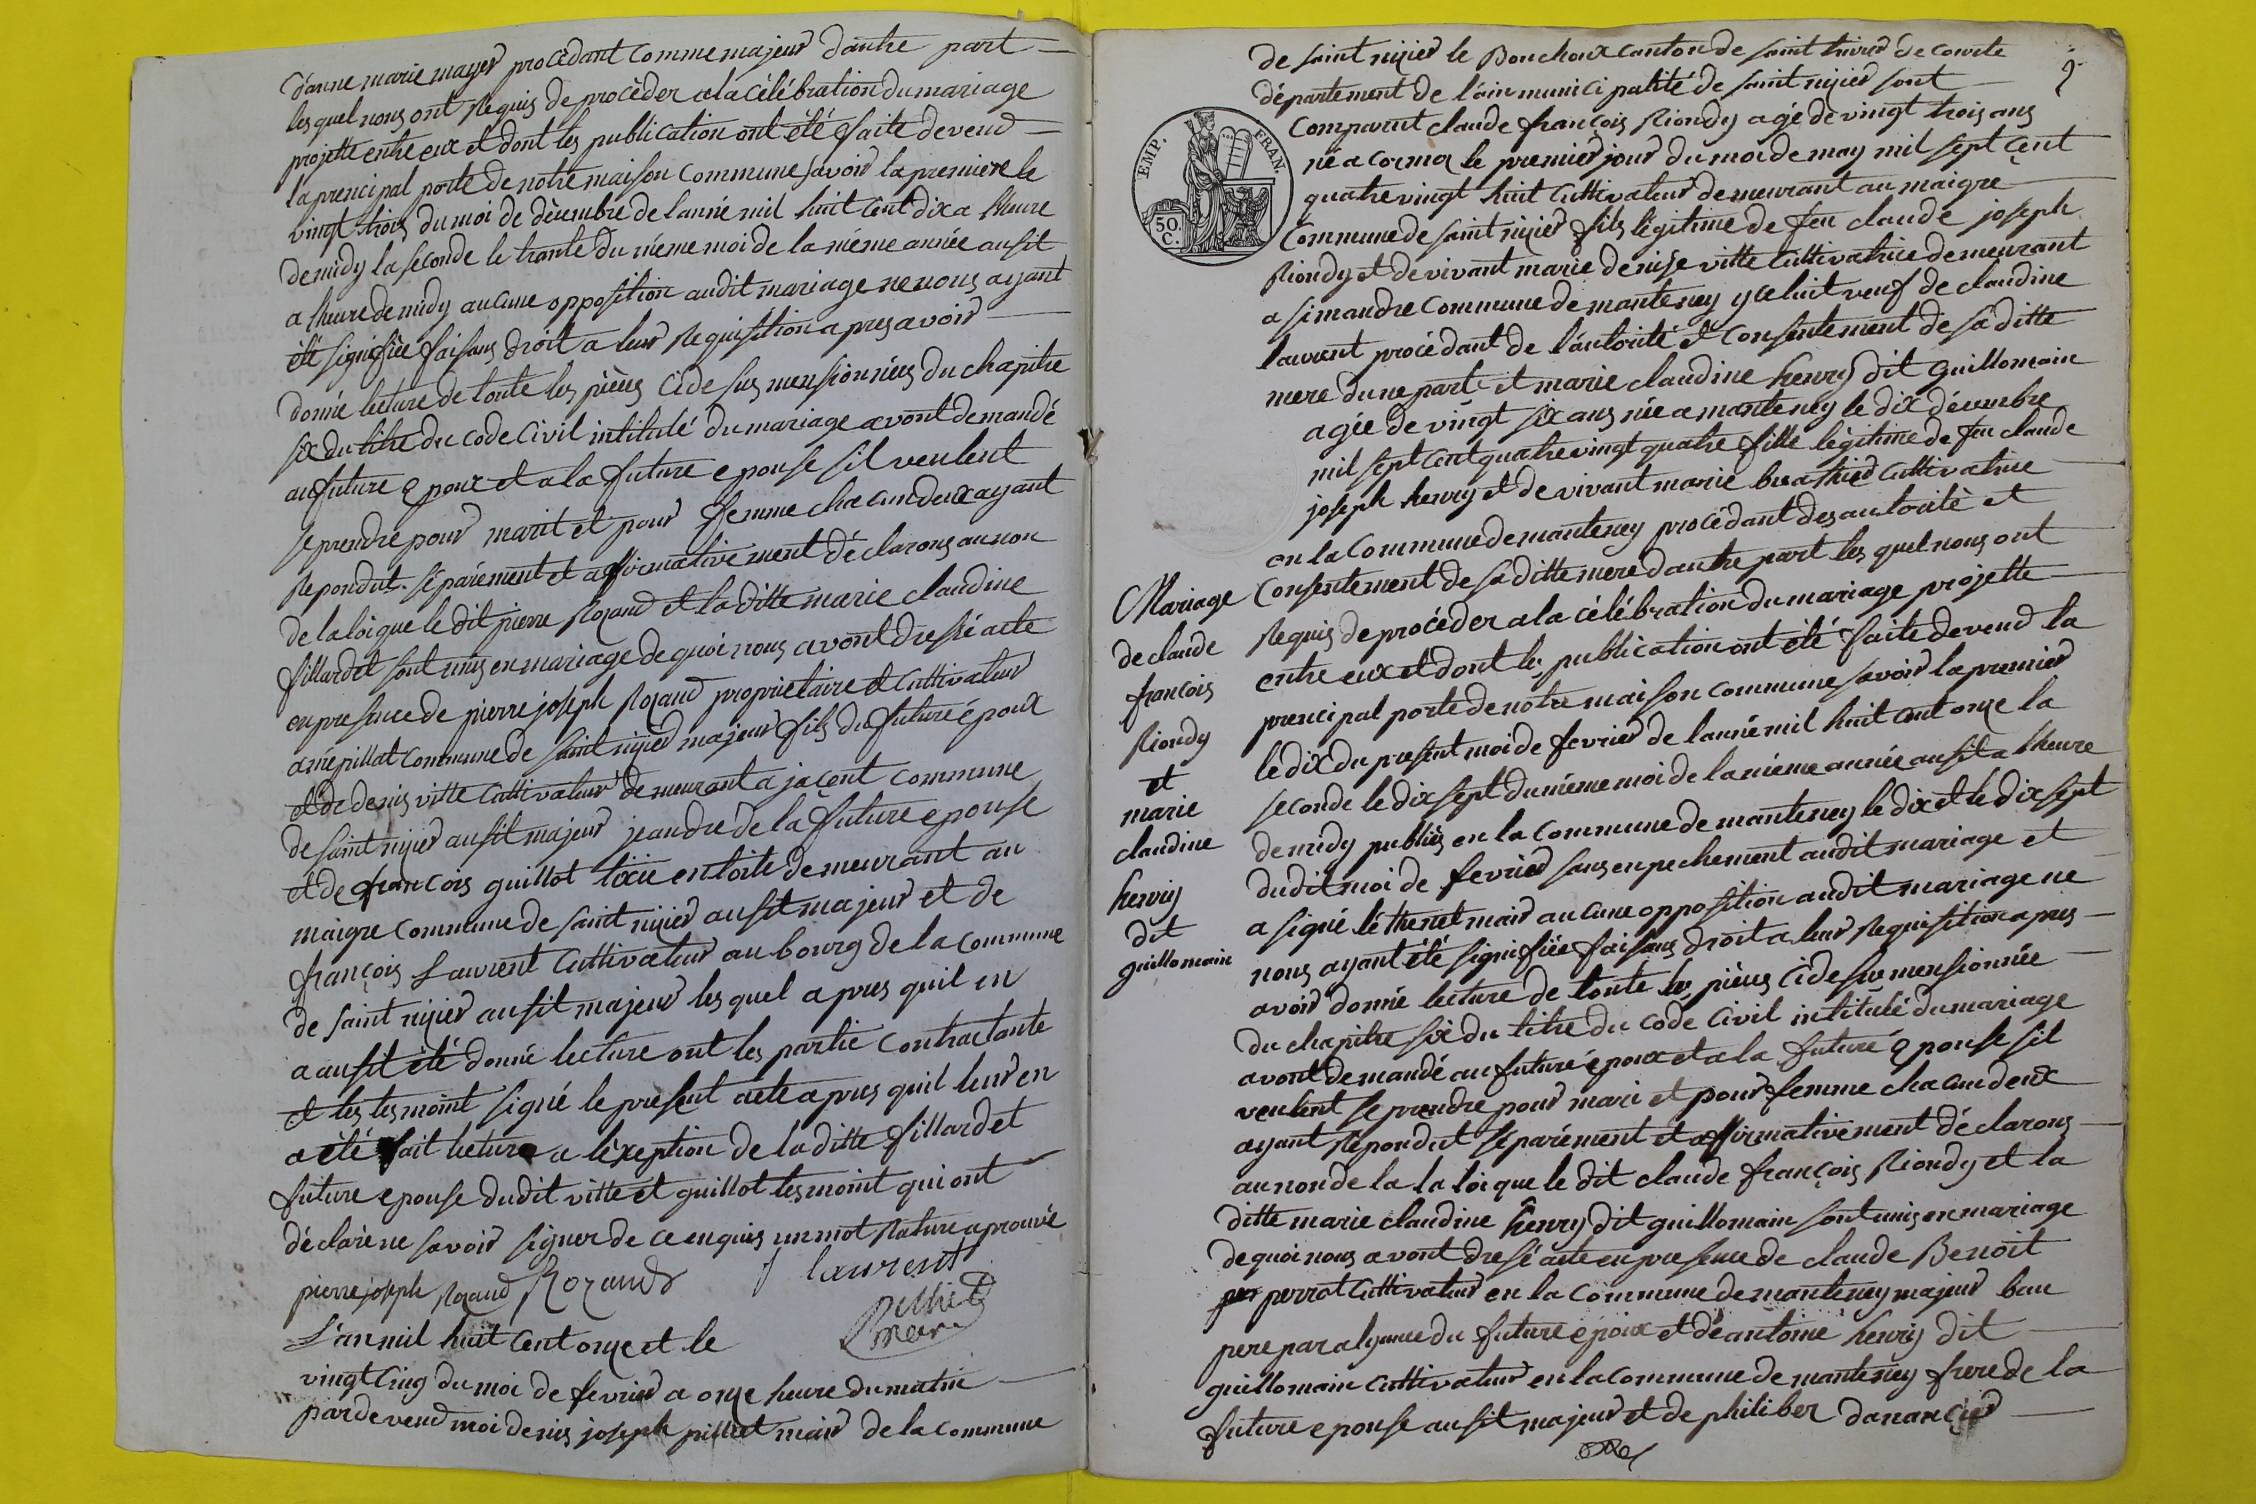 d'anne marie mayer procédant comme majeur d'autre part
les quel nous ont Requis de procéder a la célébration du mariage
projetté entre eux et dont les publication ont été faite devend
la prencipal porte de notre maison commune savoir la premiere le
vingt trois du moi de décembre de lanné mil huit cent dix a lheure
de midy la seconde le trante du méme moi de la méme année ausit
a lheure de midy aucune opposition audit mariage ne nous ayant
été signifiée faisans droit a leur Requisition apres avoir
donné lecture de toute les piéces cide sus mensionnées du chapitre
six du titre du code Civil intitulé du mariage avont demandé
au future epoux et a la future epouse sil veulent
se prendre pour marit et pour femme chacun deux ayant
Repondut séparément et affirmativement déclarons au non
de la loi que le dit pierre Rozand et la ditte marie claudine
fillardet sont unis en mariage de quoi nous avont dressé acte
en presence de pierre joseph Rozand proprietaire et cultivateur
a mépillat commune de saint nizier majeur fils du future époux
et de denis vitte cultivateur demeurant a jacent commune
de saint nizier ausit majeur jeandre de la future epouse
et de françois guillot tixie en toile demeurant au
maigre commune de saint nizier ausit majeur et de
françois Laurent cultivateur au bourg de la commune
de saint nizier ausit majeur les quel apres quil en
a ausit été donné lecture ont les partie contractante
et les tesmoint signé le present acte apres quil leur en
a été fait lecture a léxeption de la ditte fillardet
future epouse dudit vitte et guillot tesmoint qui ont
déclaré ne savoir signer de ce enquis un mot Rature aprouvée
pierre joseph Rozand Rozand f laurent
Pilliet
mair
L'an mil huit cent onze et le
vingt cinq du moi de fevrier a onze heure du matin
pardevend moi denis joseph pilliet mair de la commune
de saint nizier le Bouchoux canton de saint trivier de courte
département de l'ain municipalité de saint nizier sont
comparut claude françois Riondy agé de vingt trois ans
né a cormoz le premier jour du moi de may mil sept cent
quatre vingt huit cultivateur demeurant au maigre
commune de saint nizier fils légitime de feu claude joseph
Riondy et de vivant marie denise vitte cultivatrice demeurant
a simandre commune de manteney ycelui veuf de claudine
laurent procédant de l'autorité et consentement de sa ditte
mere d'une part et marie claudine henry dit guillomain
agée de vingt six ans née a manteney le dix décembre
mil sept cent quatre vingt quatre fille légitime de feu claude
joseph henry et de vivant marie cultivatrice
en la commune de manteney procédant des autorité et
consentement de sa ditte mere dautre part les quel nous ont
Requis de procéder a la célébration du mariage projetté
entre eux et dont les publication ont été faite devend la
prencipal porte de notre maison commune savoir la premier
le dix du present moi de fevrier de lanné mil huit cent onze la
seconde le dix sept du méme moi de la méme année ausit a lheure
de midy publiés en la commune de manteney le dix et le dix sept
dudit moi de fevrier sans enpechement audit mariage et
a signé léthenet mair aucune opposition audit mariage ne
nous ayant été signifiée faisans droit a leur Requisition apres
avoir donné lecture de toute les piéces cide sus mensionnée
du chapitre six du titre du code Civil intitulé du mariage
avont demandé au future époux et a la future epouse sil
veulent se prendre pour mari et pour femme chacun deux
ayant Repondut séparément et affirmativement déclarons
au non de la la loi que le dit claude françois Riondy et la
ditte marie claudine henry dit guillomain sont unis en mariage
de quoi nous avont dresé acte en presence de claude Benoit
per perrot cultivateur en la commune de manteney majeur bau
pere par alyance du future époux et de antoine henry dit
guillomain cultivateur en la commune de manteney frere de la
future epouse ausit majeur et de philiber danancier
Mariage
de claude
françois
Riondy
et
marie
claudine
henry
dit
guillomain
EMP. FRAN.
50
C.